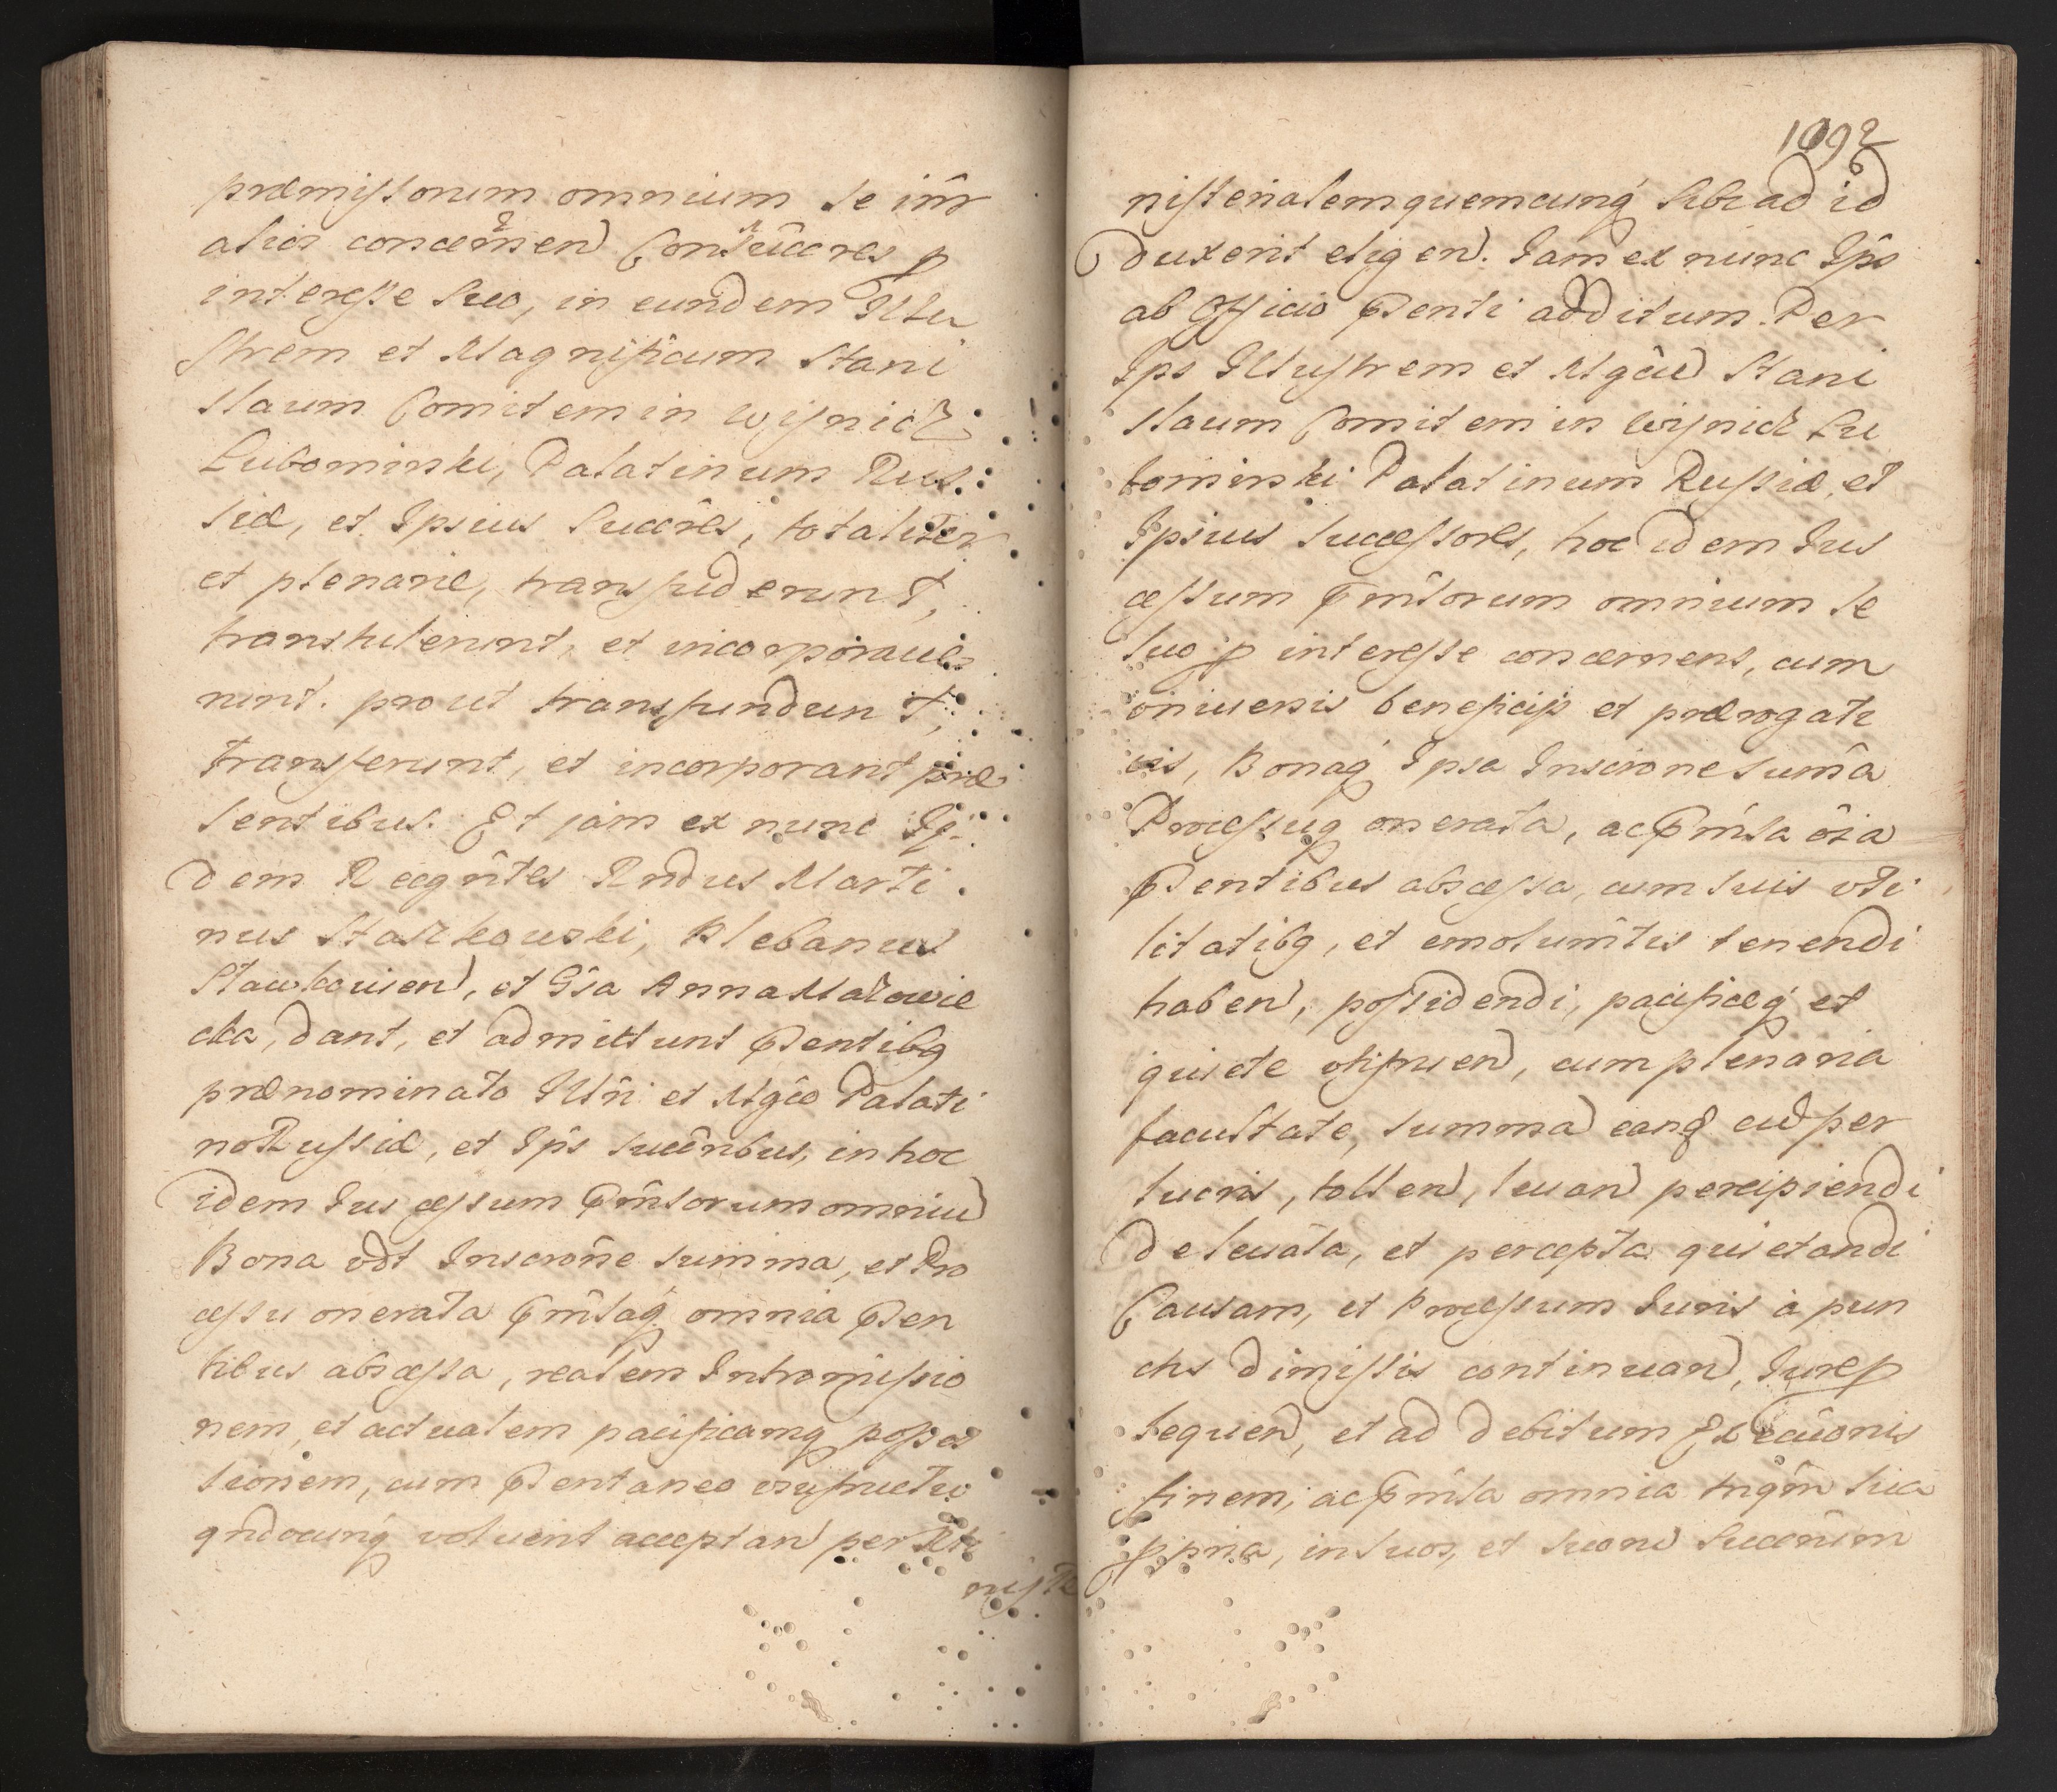 præmissorum omnium se iñr
alios concernen Consuccres p
interesse suo, in eundem Illu
strem et Magnificum Stani
slaum Comitem in Wijnicz
Lubomirski, Palatinum Rus
siæ, et Ipsius Succres, totaliter
et plenarie, transfuderunt,
transtulerunt, et incorporaue
runt. prout transfundunt,
transferunt, et incorporant præ
sentibus. Et jam ex nunc Ij
dem Recgñtes Rndus Marti
nus Staszkowski, Plebanus
Stawkouien, et Gsa Anna Małowie
cka, dant, et admittunt Pentibq
prænominato Illri et Mgco Palati
no Russiæ, et Ips succribus, in hoc
idem Jus cessum Pmissorum omniu
Bona vdt Inscrone summa, et Pro
cessu onerata Pmissaq omnia Pen
tibus abscessa, realem Intromissio
nem, et actualem pacificamq posses
sionem, cum Pentaneo vsufructu
qndocunq voluerit acceptan per Mi
niste
1092
nisterialem quemcunq sibi ad id
duxerit eligen. Jam ex nunc Ips
ab Officio Penti additum. Per
Ips Illustrem et Mgcu Stani
slaum Comitem in Wijnicz Lu
bomirski Palatinum Russiæ, et
Ipsius Successores, hoc idem Jus
cessum Pmissorum omnium se
suo p interesse concernens, cum
vniuersis beneficijs et prærogati
uis, Bonaq Ipsa Inscrone sum̃a
Processuq onerata, ac Pmissa oia
Pentibus abscessa, cum suis vti
litatibq, et emolumtis tenendi
haben, possidendi, pacificeq et
quiete vtifruen, cum plenaria
facultate, summa eanq cu per
lucris, tollen, leuan percipiendi
de leuata, et percepta quietandi
Causam, et Processum Juris à pun
ctis dimissis continuan, Jurep
sequen, et ad debitum Executionis
finem, ac Pmissa omnia tnqm sua
ppria, in suos, et suoru Succrum